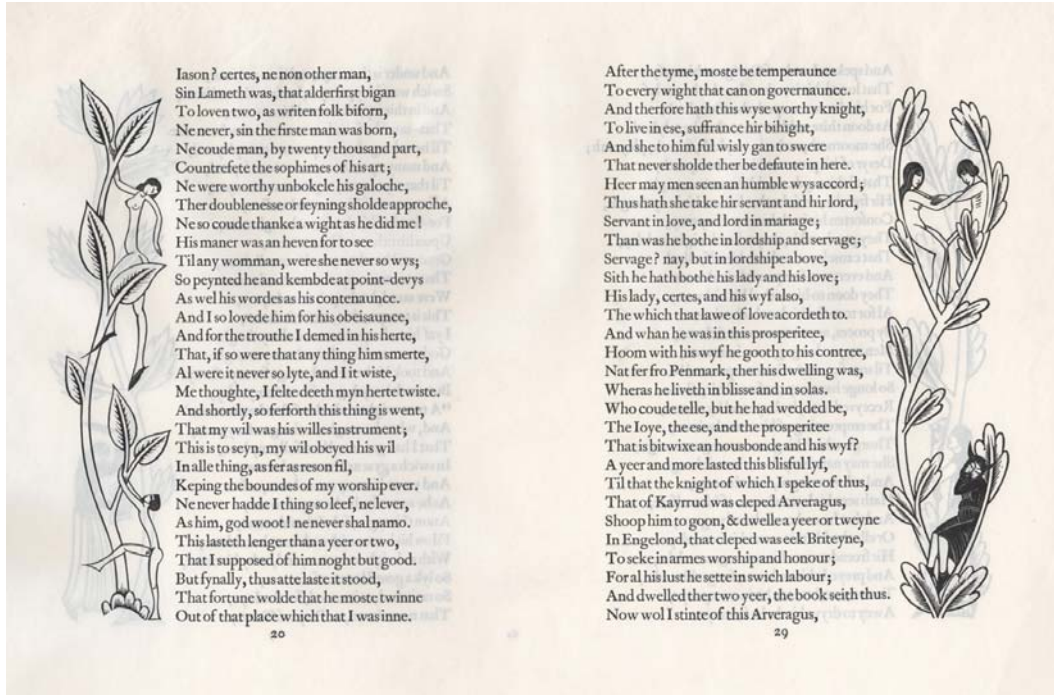 Iason? certes, ne non other man,
Sin Lameth was, that alderfirst bigan
To loven two, as writen folk biforn,
Ne never, sin the firste man was born,
Ne coude man, by twenty thousand part,
Countrefete the sophimes of his art;
Ne were worthy unbokele his galoche,
Ther doublenesse or feyning sholde approche,
Ne so coude thanke a wight as he did me!
His maner was an heven for to see
Til any womman, were she never so wys;
So peynted he and kembde at point-devys
As wel his wordes as his contenaunce.
And I so lovede him for his obeisaunce,
And for the trouthe I demed in his herte,
That, if so were that any thing him smerte,
Al were it never so lyte, and I it wiste,
Me thoughte, I felte deeth myn herte twiste.
And shortly, so ferforth this thing is went,
That my wil was his willes instrument;
This is to seyn, my wil obeyed his wil
In alle thing, as fer as reson fil,
Keping the boundes of my worship ever.
Ne never hadde I thing so leef, ne lever,
As him, god woot! ne never shal namo.
This lasteth lenger than a yeer or two,
That I supposed of him noght but good.
But fynally, thus atte laste it stood,
That fortune wolde that he moste twinne
Out of that place which that I was inne.
20
After the tyme, moste be temperaunce
To every wight that can on governaunce.
And therfore hath this wyse worthy knight,
To live in ese, suffrance hir bihight,
And she to him ful wisly gan to swere
That never sholde ther be defaute in here.
Heer may men seen an humble wys accord;
Thus hath she take hir servant and hir lord,
Servant in love, and lord in mariage;
Than was he bothe in lordship and servage;
Servage? nay, but in lordshipe above,
Sith he hath bothe his lady and his love;
His lady, certes, and his wyf also,
The which that lawe of love acordeth to.
And whan he was in this prosperitee,
Hoom with his wyf he gooth to his contree,
Nat fer fro Penmark, ther his dwelling was,
Wheras he liveth in blisse and in solas.
Who coude telle, but he had wedded be,
The Ioye, the ese, and the prosperitee
That is bitwixe an housbonde and his wyf?
A yeer and more lasted this blisful lyf,
Til that the knight of which I speke of thus,
That of Kayrrud was cleped Arveragus,
Shoop him to goon, & dwelle a yeer or tweyne
In Engelond, that cleped was eek Briteyne,
To seke in armes worship and honour;
For al his lust he sette in swich labour;
And dwelled ther two yeer, the book seith thus.
Now wol I stinte of this Arveragus,
29